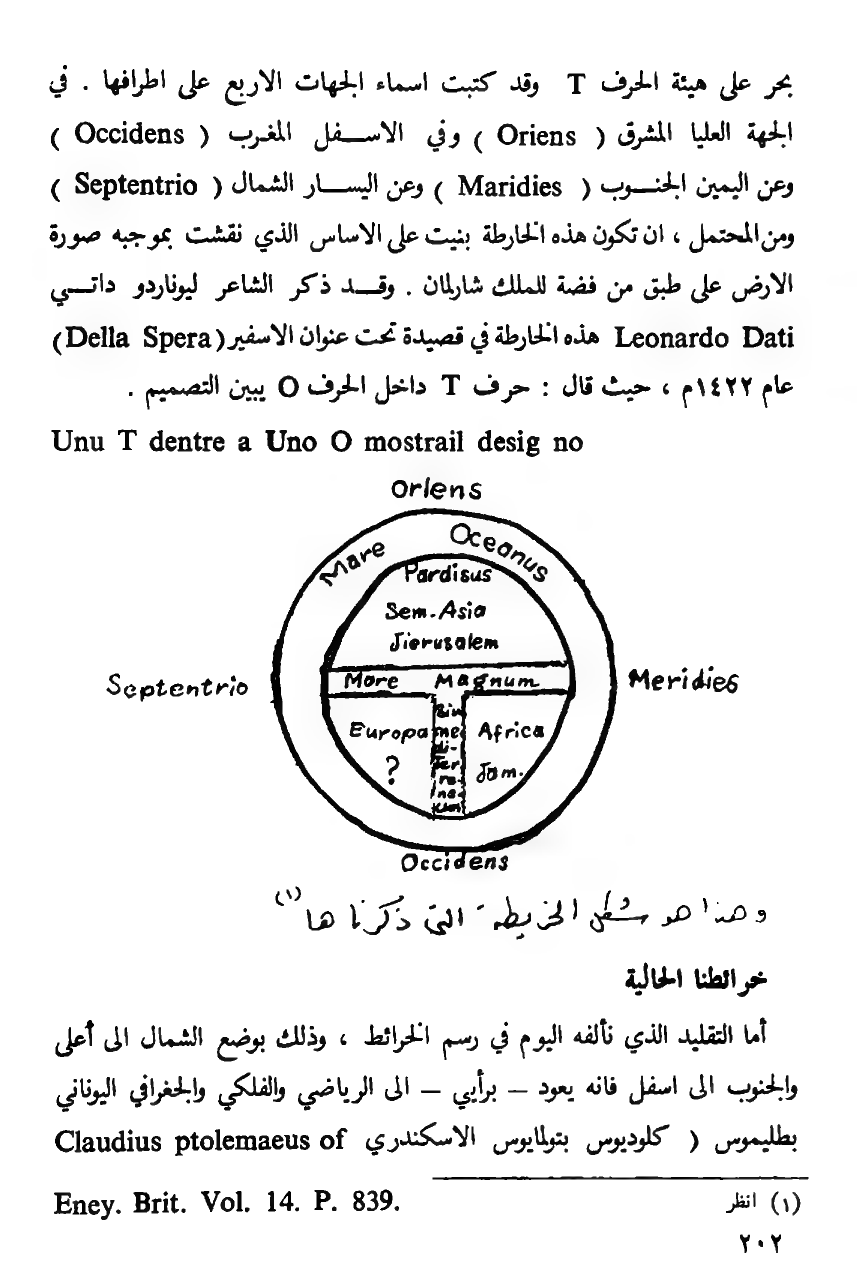 بحر على هيئة الحرف T وقد كتبت اسماء الجهات الاربع على اطرافها . في
الجهة العليا المشرق ( Oriens ) وفي الاسفل المغرب ( Occidens )
وعن اليمين الجنوب ( Maridies ) وعن اليسار الشمال ( Septentrio )
ومن المحتمل ، ان تكون هذه الخارطة بنيت على الاساس الذي نقشت بموجبه صورة
الارض على طبق من فضة للملك شارلمان . وقد ذكر الشاعر ليوناردو داتي
Leonardo Dati هذه الخارطة في قصيدة تحت عنوان الاسفير (Della Spera)
عام ١٤٢٢م ، حيث قال : حرف T داخل الحرف O يبين التصميم .
Unu T dentre a Uno O mostrail desig no
Oriens
Mare Oceanus
Pardisus
Sem. Asia
Jierusalem
Septentrio
Mare Magnum
Meridies
Europa
?
me
di-
ter
ra-
na-
Africa
Occidens
وهذا هو شكل الخريطة التي ذكرناها (١)
خرائطنا الحالية
أما التقليد الذي نألفه اليوم في رسم الخرائط ، وذلك بوضع الشمال الى أعلى
والجنوب الى اسفل فانه يعود – برأيي – الى الرياضي والفلكي والجغرافي اليوناني
بطليموس ( كلوديوس بتولمايوس الاسكندري Claudius ptolemaeus of
(١) انظر Eney. Brit. Vol. 14. P. 839.
٢٠٢